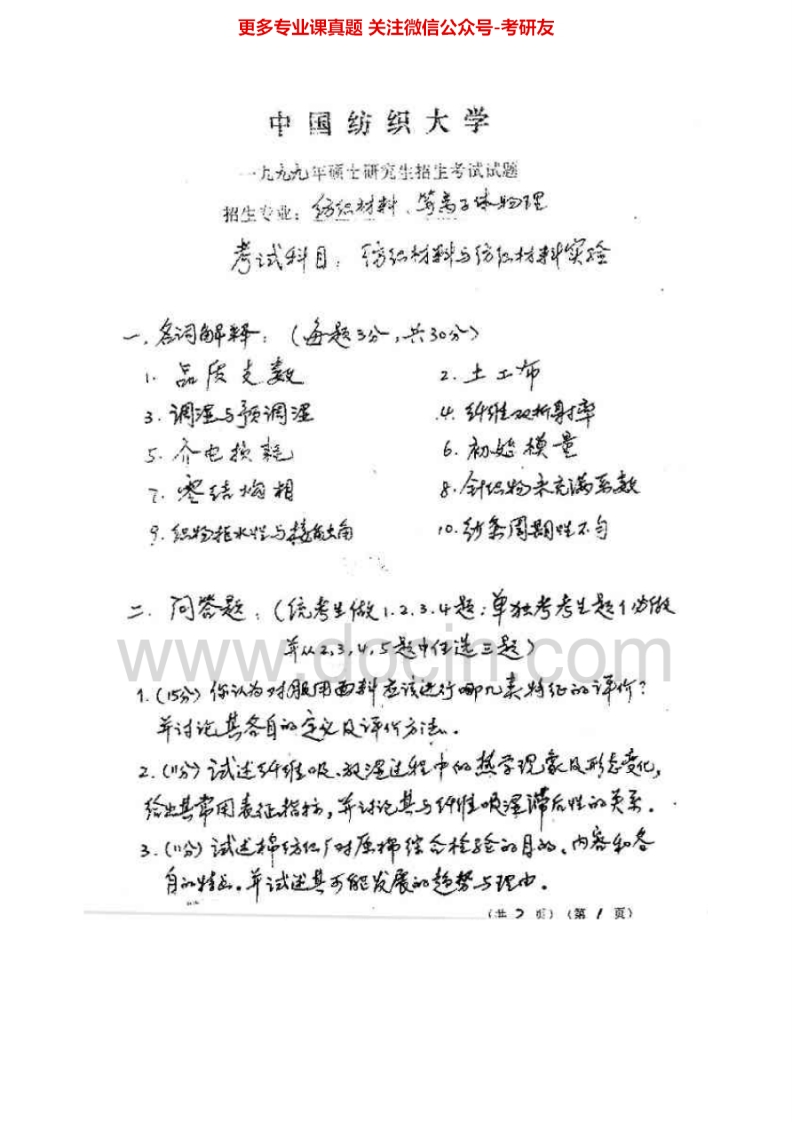 更多专业课真题 关注微信公众号-考研友
中国纺织大学
一九九九年硕士研究生招生考试试题
招生专业：纺织材料、等离子体物理
考试科目：纺织材料与纺织材料实验
一、名词解释：（每题3分，共30分）
1. 品质支数 2. 土工布
3. 调湿与预调湿 4. 纤维双折射率
5. 介电损耗 6. 初始模量
7. 零结构相 8. 针织物未充满系数
9. 织物拒水性与接触角 10. 纱条周期性不匀
二、问答题：（统考生做1.2.3.4题；单独考考生题1必做
并从2,3,4,5题中任选三题）
www.docin.com
1. (15分) 你认为对服用面料应该进行哪几类特征的评价？
并讨论其各自的定义及评价方法。
2. (11分) 试述纤维吸、放湿过程中的热学现象及形态变化，
给出其常用表征指标，并讨论其与纤维吸湿滞后性的关系。
3. (11分) 试述棉纺织厂对原棉综合检验的目的、内容和各
自的特点。并试述其可能发展的趋势与理由。
（共2页）（第1页）